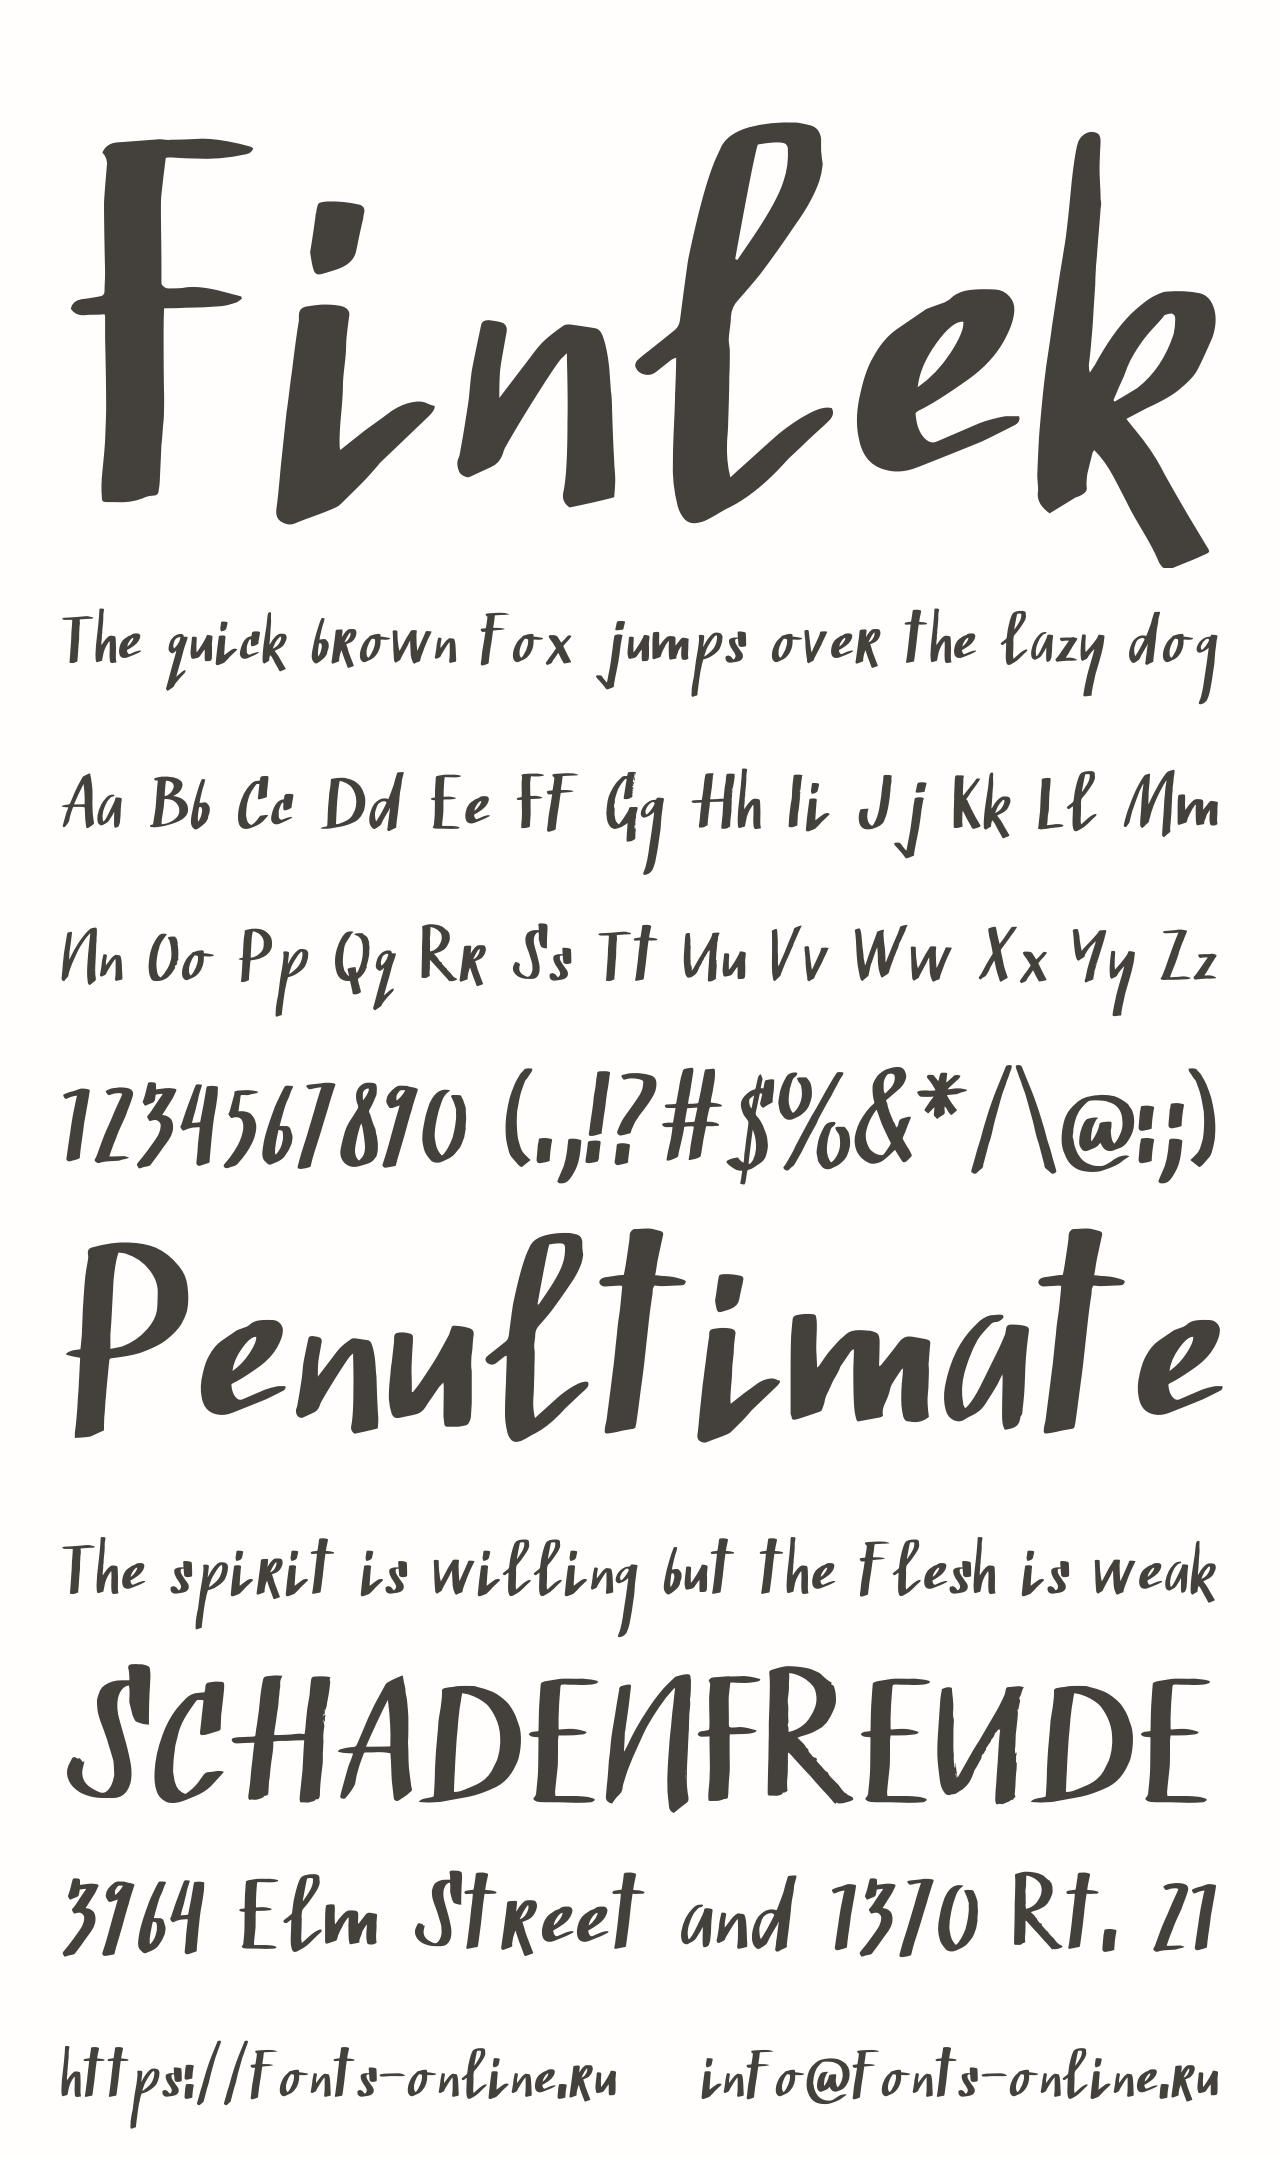 Finlek
The quick brown fox jumps over the lazy dog
Aa Bb Cc Dd Ee Ff Gg Hh Ii Jj Kk Ll Mm
Nn Oo Pp Qq Rr Ss Tt Uu Vv Ww Xx Yy Zz
1234567890 (.,!?#$%&*/\@:;)
Penultimate
The spirit is willing but the flesh is weak
SCHADENFREUDE
3964 Elm Street and 1370 Rt. 21
https://fonts-online.ru info@fonts-online.ru